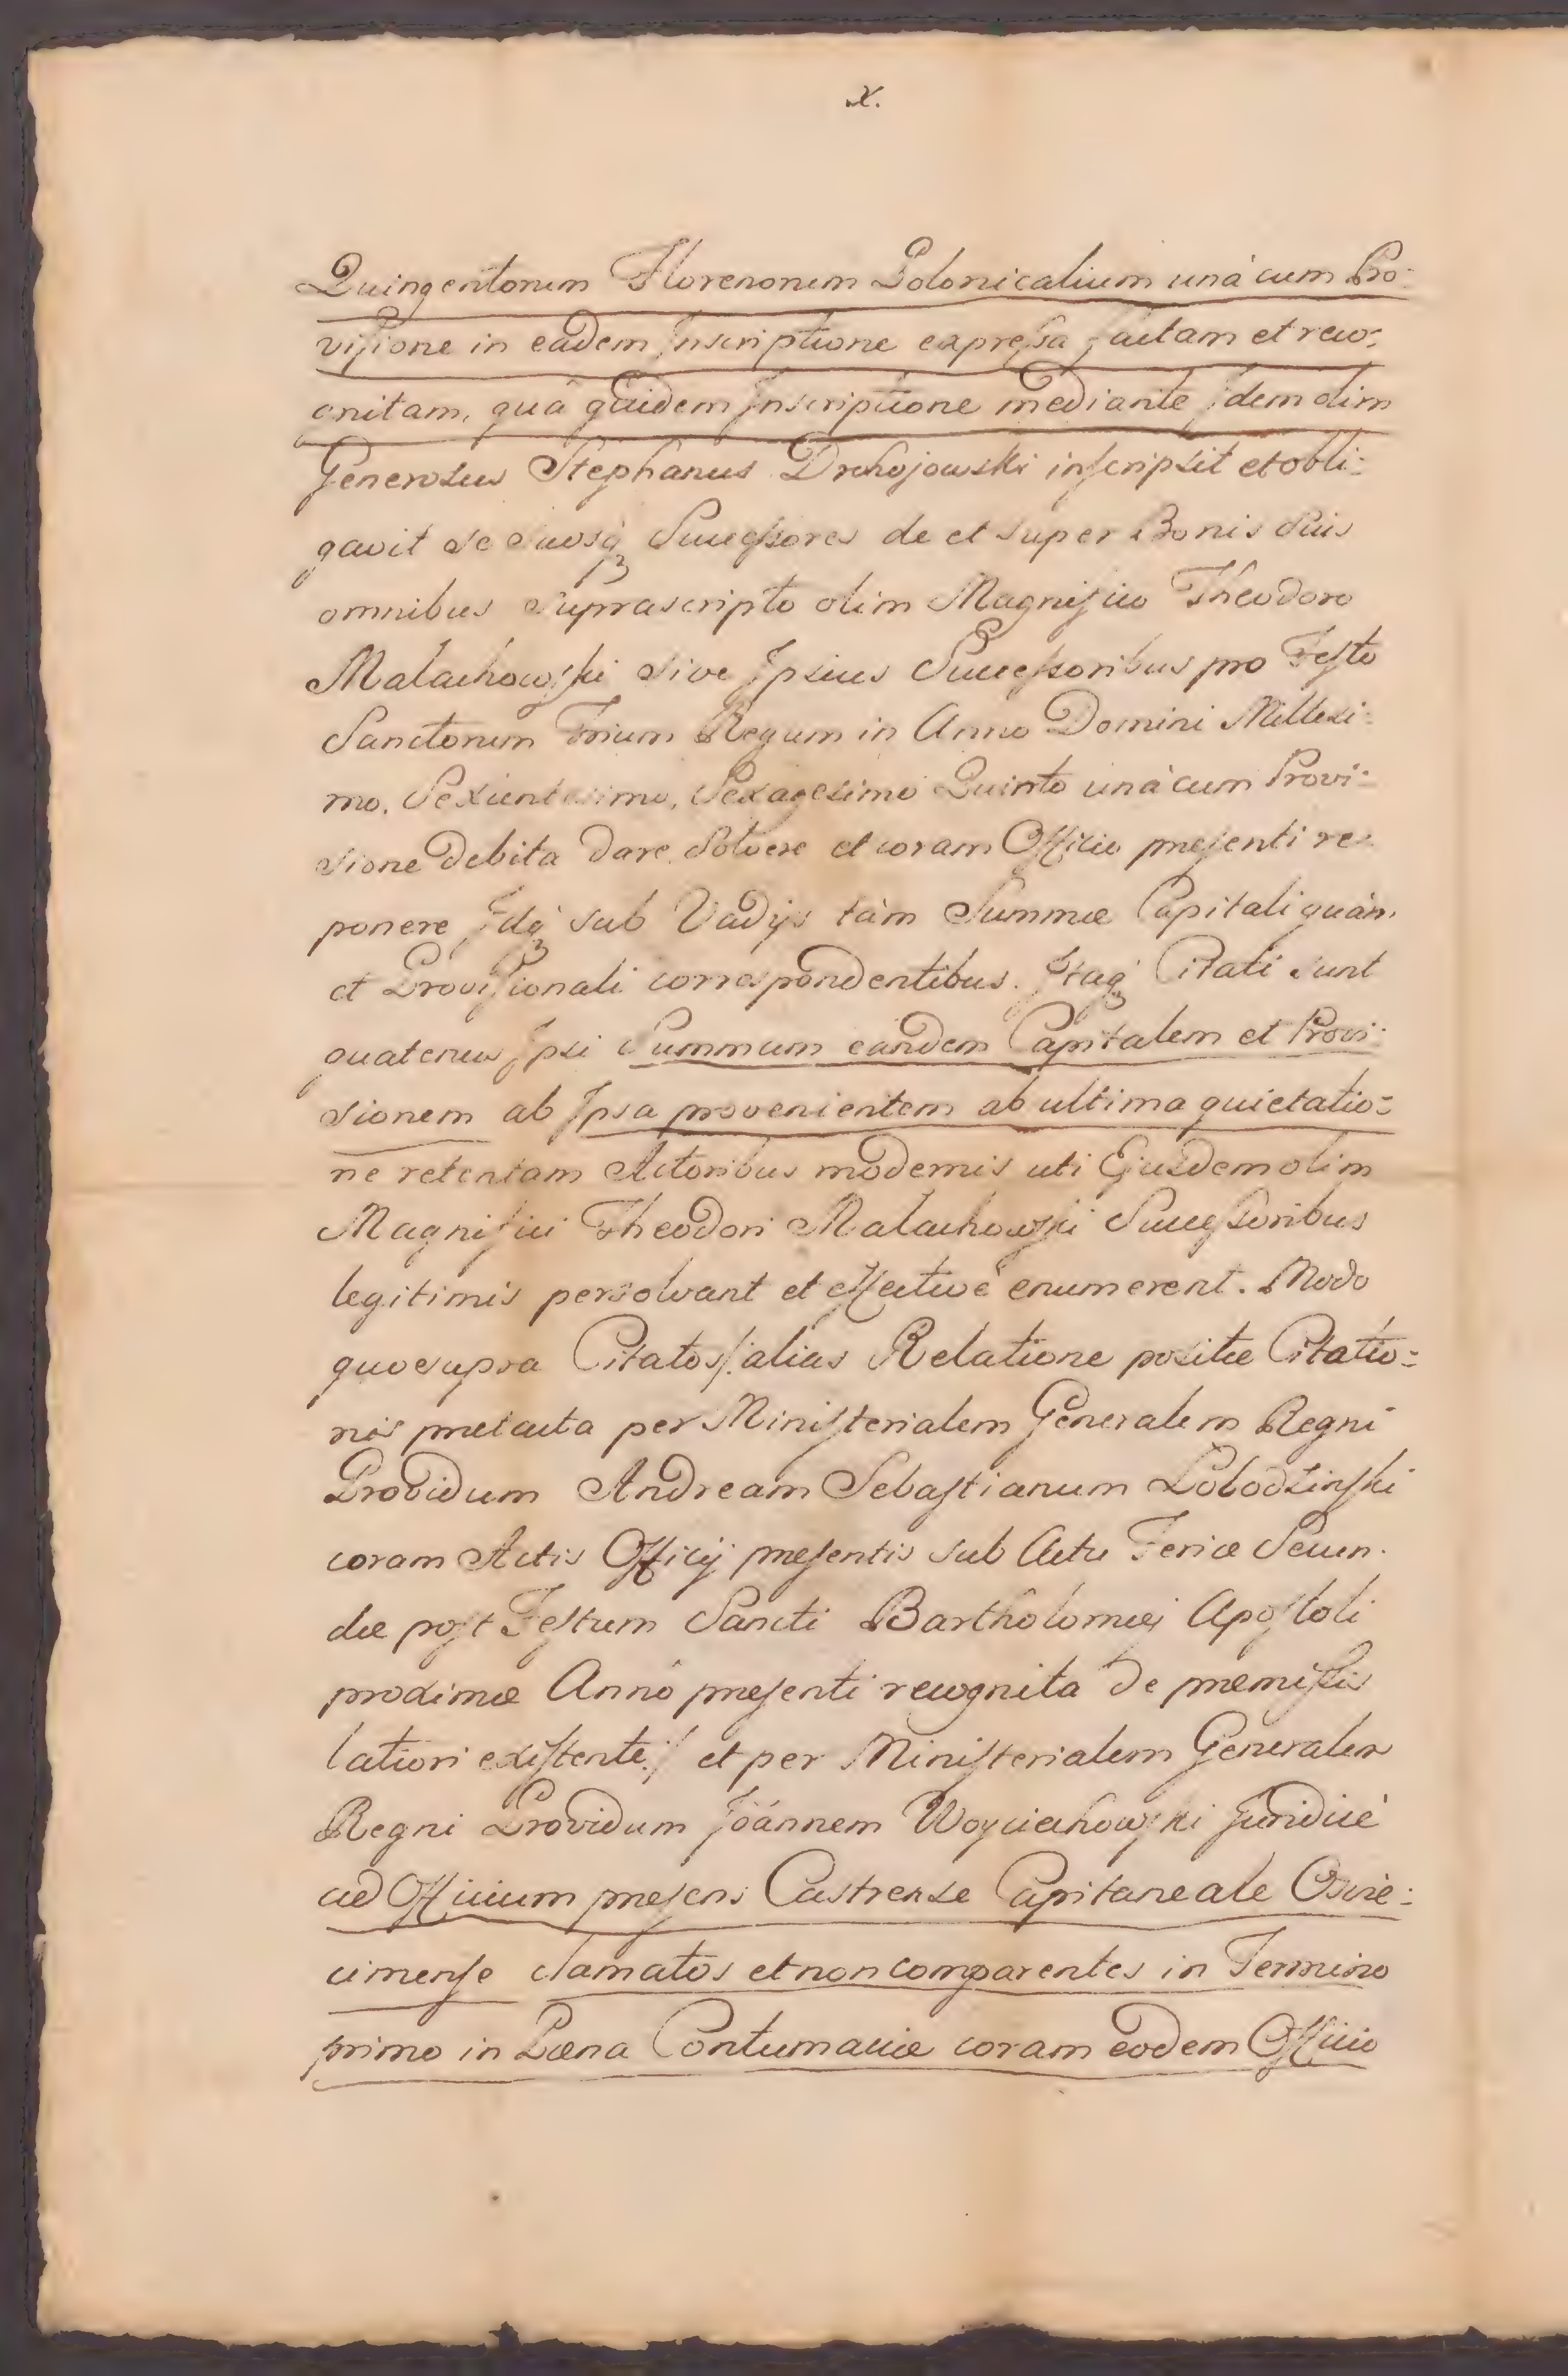 x.
Quingentorum Florenorum Polonicalium unà cum Pro:
visione in eadem Inscriptione expressa factam et reco:
gnitam, quâ quidem Inscriptione mediante Idem olim
Generosus Stephanus Drohojowski inscripsit et obli:
gavit se suosq3 Successores de et super Bonis suis
omnibus suprascripto olim Magnifico Theodoro
Malachowski sive Ipsius Successoribus pro Festo
Sanctorum Trium Regum in Anno Domini Millesi:
mo, Sexcentesimo, Sexagesimo Quinto unà cum Provi:
sione debita dare, Solvere et coram Officio presenti re:
ponere, Idq3 sub Vadijs tàm Summæ Capitali quàm
et Provisionali correspondentibus. Itaq3 Citati sunt
quatenus Ipsi Summam eandem Capitalem et Provi:
sionem ab Ipsa provenientem ab ultima quietatio:
ne retentam Actoribus modernis uti Ejusdem olim
Magnifici Theodori Malachowski Successoribus
legitimis persolvant et effectivè enumerent. Modo
quo supra Citatos /:alias Relatione positæ Citatio:
nis pretacta per Ministerialem Generalem Regni
Providum Andream Sebastianum Lobodzinski
coram Actis Officij presentis sub Actu Feriæ Secun:
dæ post Festum Sancti Bartholomæi Apostoli
proximæ Anno presenti recognita de premissis
latiori existente:/ et per Ministerialem Generalem
Regni Providum Joánnem Woyciechowski Juridicè
ad Officium presens Castrense Capitaneale Oswie:
cimense clamatos et non comparentes in Termino
primo in Pœna Contumaciæ coram eodem Officio